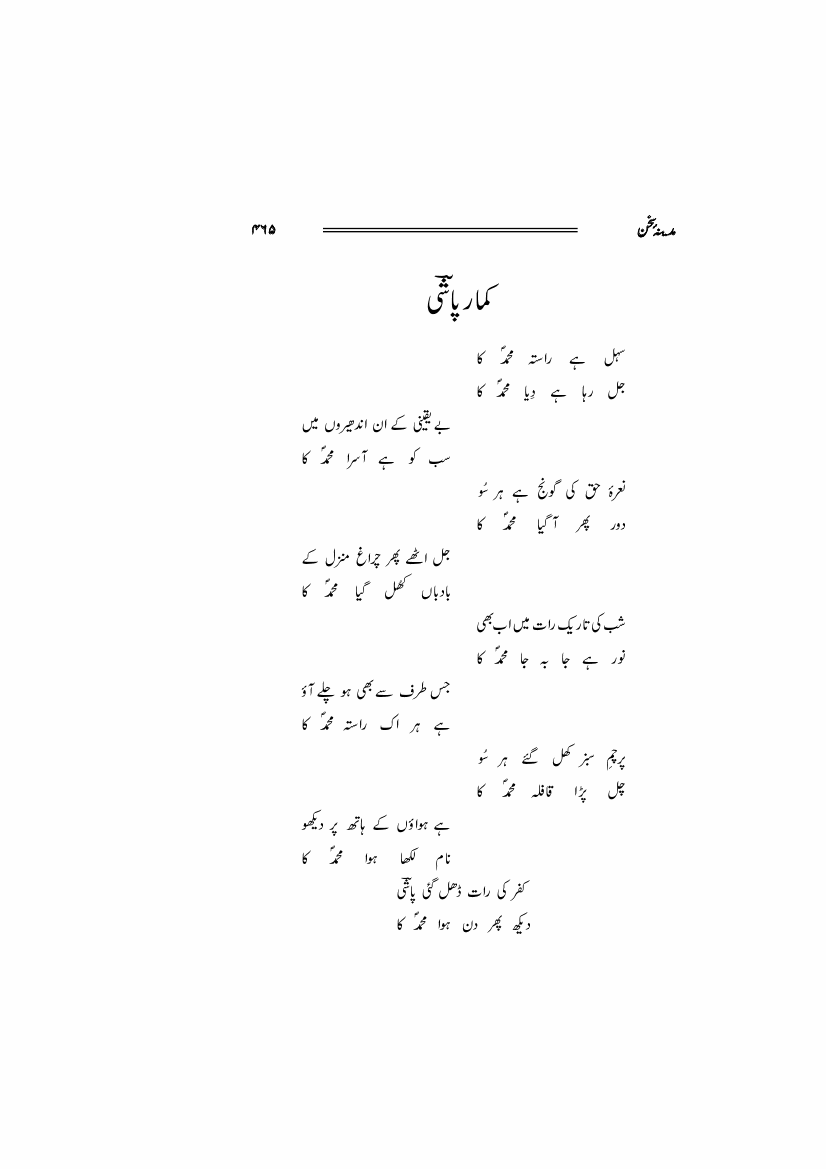 مدینہ سخن ۴۶۵
کمار پاشیؔ
سہل ہے راستہ محمدؐ کا
جل رہا ہے دِیا محمدؐ کا
بے یقینی کے ان اندھیروں میں
سب کو ہے آسرا محمدؐ کا
نعرۂ حق کی گونج ہے ہر سُو
دور پھر آ گیا محمدؐ کا
جل اٹھے پھر چراغ منزل کے
بادباں کھُل گیا محمدؐ کا
شب کی تاریک رات میں اب بھی
نور ہے جا بہ جا محمدؐ کا
جس طرف سے بھی ہو چلے آؤ
ہے ہر اک راستہ محمدؐ کا
پرچمِ سبز کھل گئے ہر سُو
چل پڑا قافلہ محمدؐ کا
ہے ہواؤں کے ہاتھ پر دیکھو
نام لکھا ہوا محمدؐ کا
کفر کی رات ڈھل گئی پاشیؔ
دیکھ پھر دن ہوا محمدؐ کا